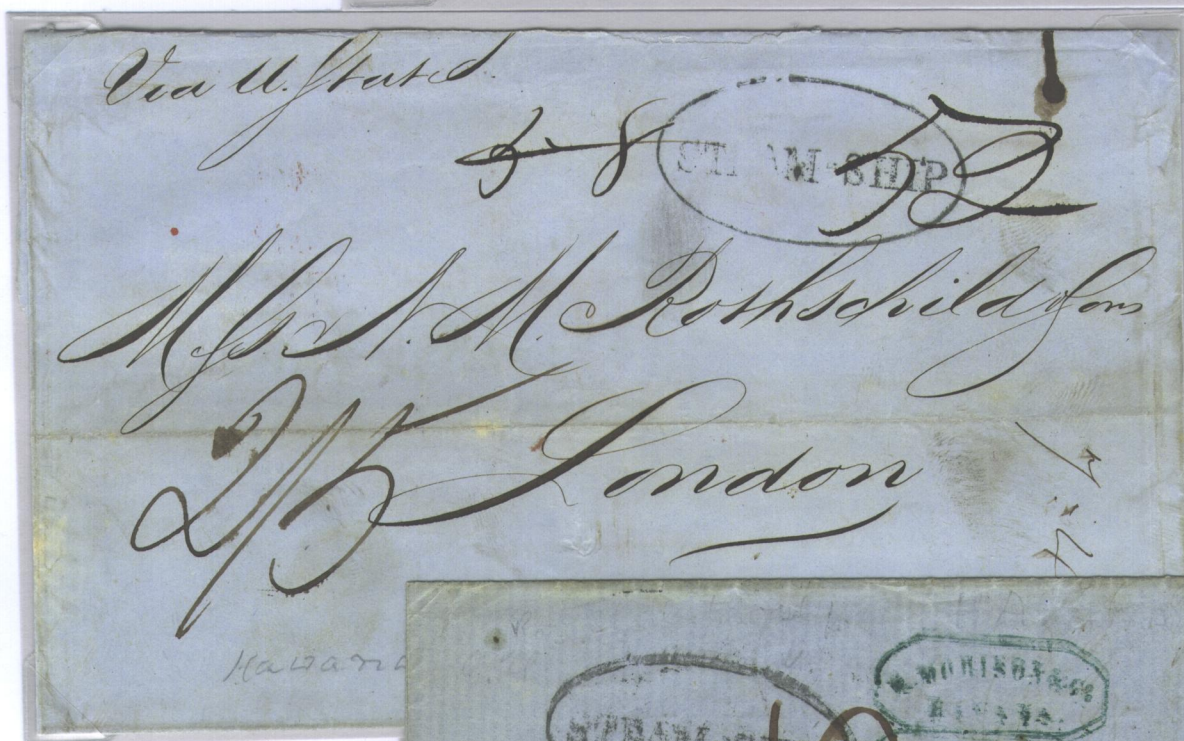 Via U. States
STEAM-SHIP
52
Messrs N. M. Rothschild & Sons
2/5 London
Havana
STEAM
HAVANA.